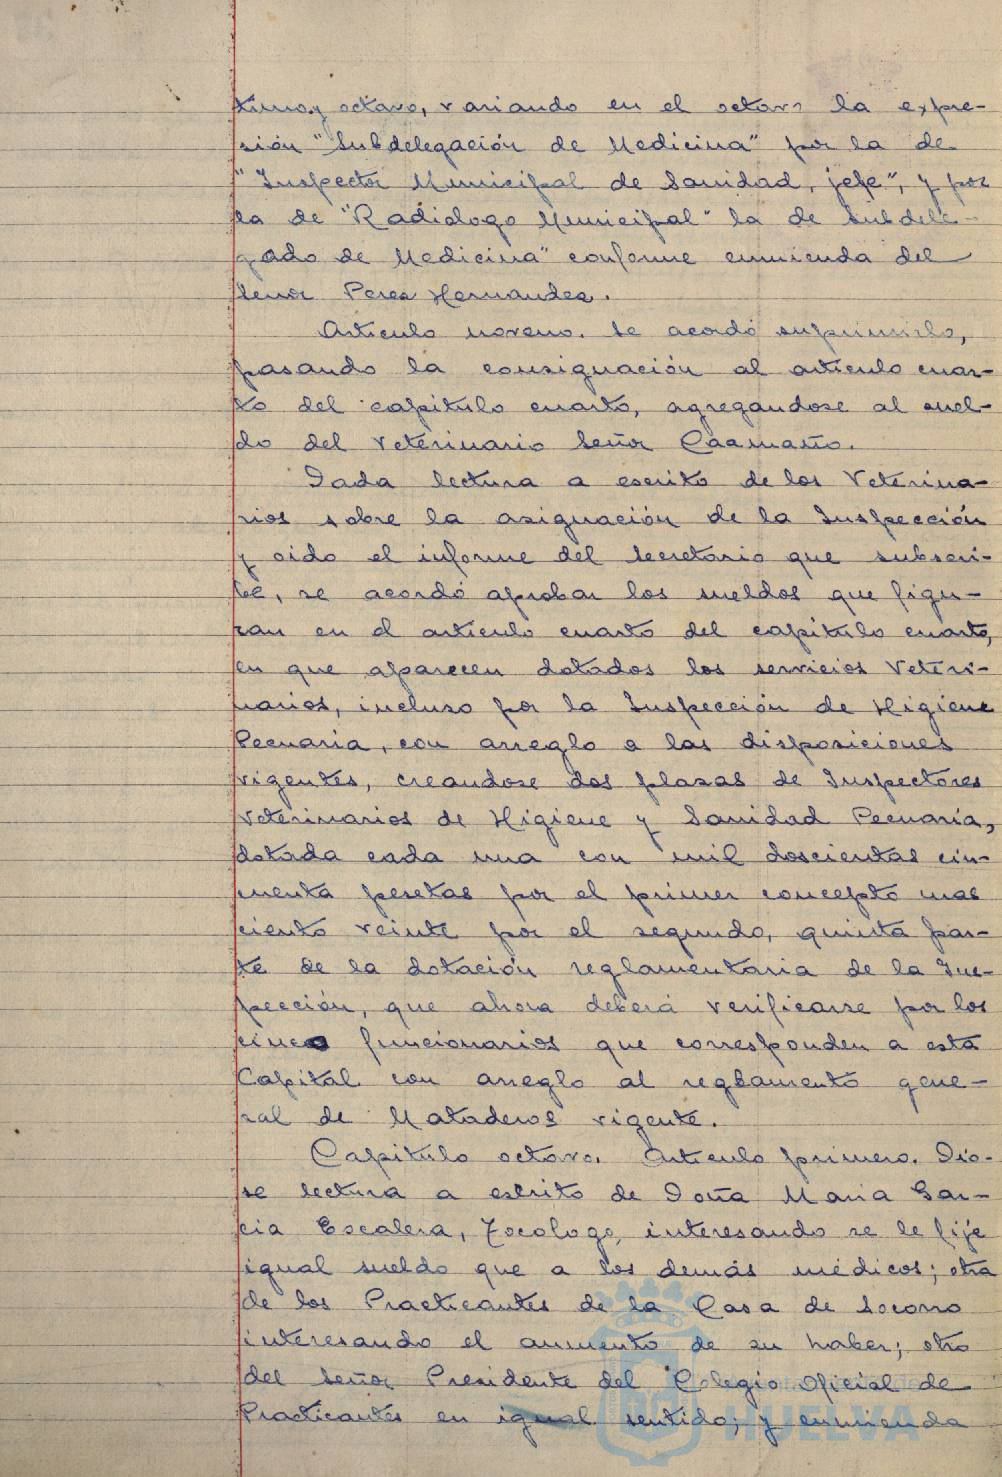 timo y octavo, variando en el octavo la expre-
sión "Subdelegación de Medicina" por la de
"Inspector Municipal de Sanidad, jefe", y por
la de "Radiologo Municipal" la de Subdele-
gado de Medicina" conforme enmienda del
Señor Perez Hernandez.
Articulo noveno. Se acordó suprimirlo,
pasando la consignación al articulo cuar-
to del capitulo cuarto, agregandose al suel-
do del Veterinario Señor Caamaño.
Dada lectura a escrito de los Veterina-
rios sobre la asignación de la Inspección
y oido el informe del Secretario que subscri-
be, se acordó aprobar los sueldos que figu-
ran en el articulo cuarto del capitulo cuarto,
en que aparecen dotados los servicios Veteri-
narios, incluso por la Inspección de Higiene
Pecuaria, con arreglo a las disposiciones
vigentes, creandose dos plazas de Inspectores
Veterinarios de Higiene y Sanidad Pecuaria,
dotada cada una con mil doscientas cin-
cuenta pesetas por el primer concepto mas
ciento veinte por el segundo, quinta par-
te de la dotación reglamentaria de la Ins-
pección, que ahora deberá verificarse por los
cinco funcionarios que corresponden a esta
Capital con arreglo al reglamento gene-
ral de Mataderos vigente.
Capitulo octavo. Articulo primero. Dió-
se lectura a escrito de Doña Maria Gar-
cia Escalera, Tocologo, interesando se le fije
igual sueldo que a los demás médicos; otra
de los Practicantes de la Casa de Socorro
interesando el aumento de su haber; otro
del Señor Presidente del Colegio Oficial de
Practicantes en igual sentido; y enmienda
HUELVA